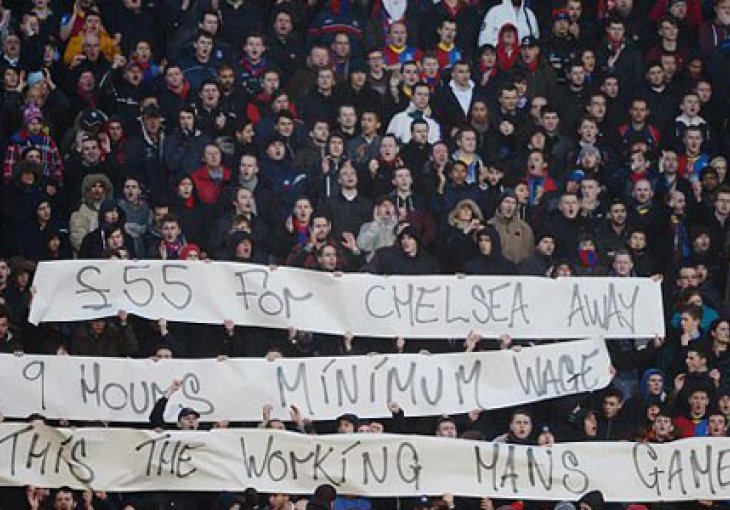 £55 FOR CHELSEA AWAY
9 HOURS MINIMUM WAGE
THIS THE WORKING MANS GAME